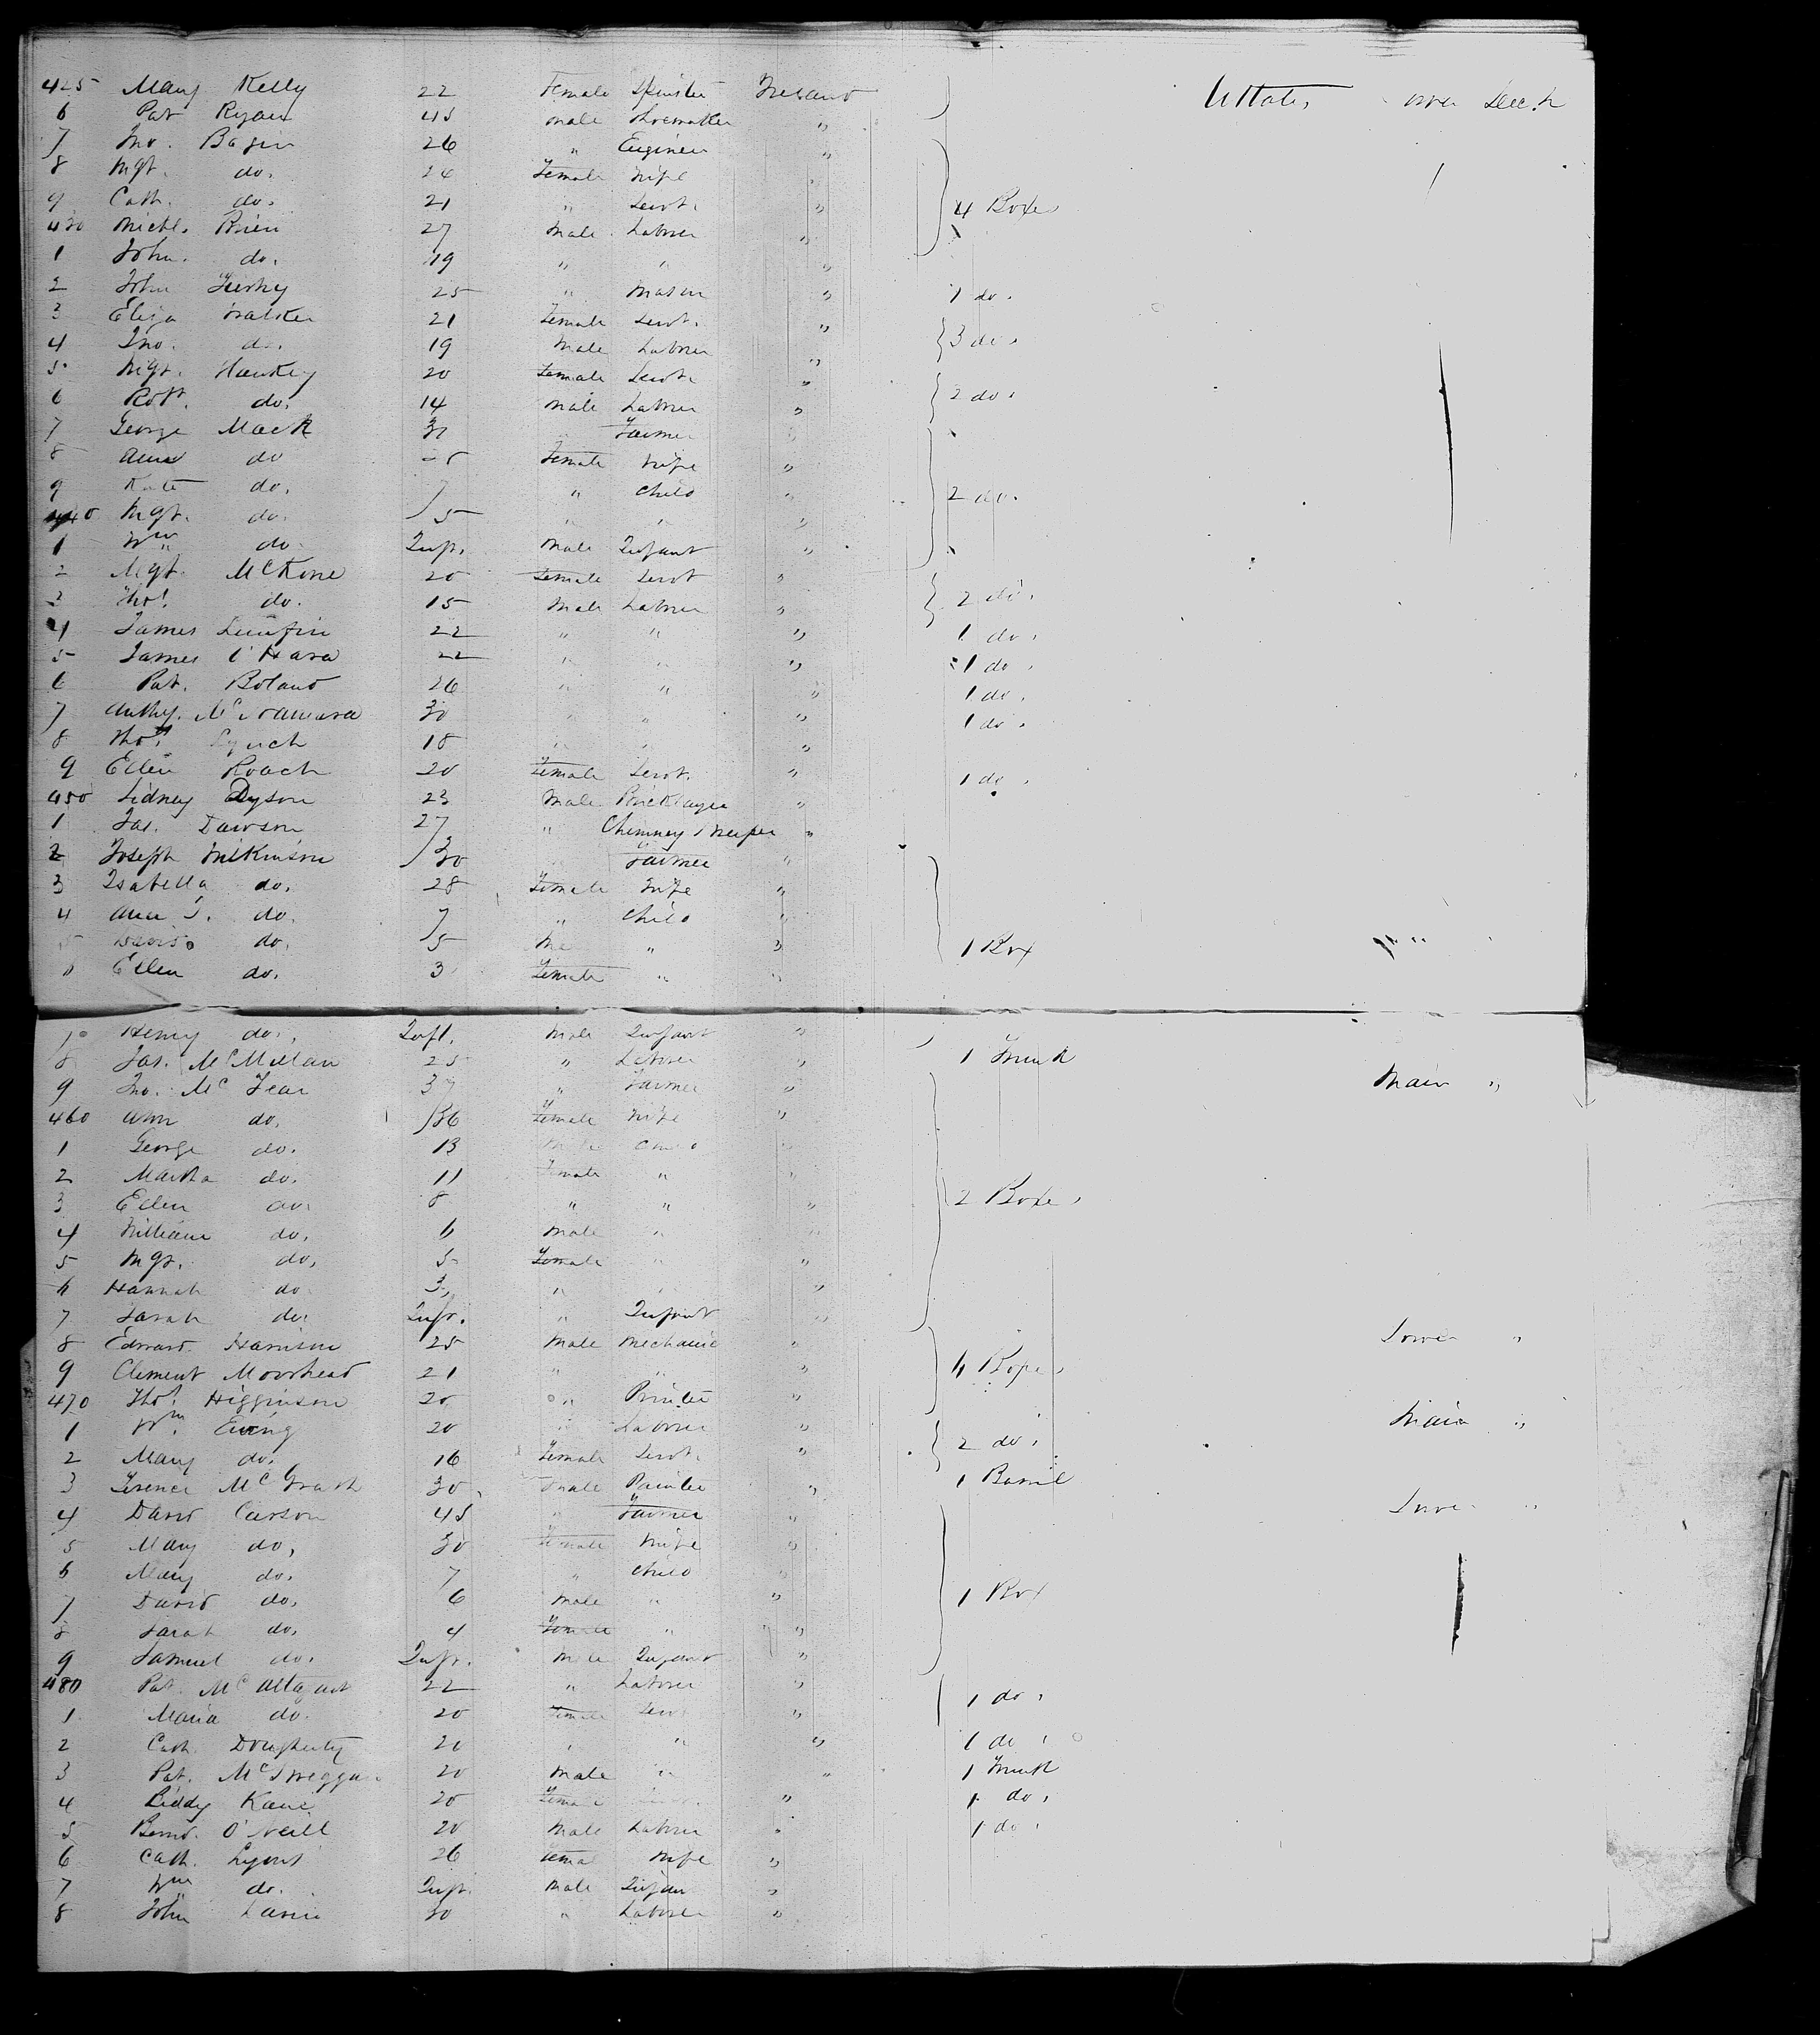 425 Mary Kelly 22 Female Spinster Ireland U States Lower Deck
6 Pat Ryan 45 Male Shoemaker "
7 Jno. 26 " Engineer "
8 Mgt. do. 26 Female Wife "
9 Cath. do. 21 " Servt. " 4 Boxes
430 Michl. Brien 27 Male Laborer "
1 John do. 19 " " "
2 John 25 " Mason " 1 do.
3 Eliza Walker 21 Female Servt. "
4 Jno. do. 19 Male Laborer " 3 do.
5 Mgt. 20 Female Servt. "
6 Robt. do. 14 Male Laborer " 2 do.
7 George Mack " Farmer "
8 Ann do Female Wife "
9 Kate do. 7 " Child " 2 do.
440 Mgt. do. 5 " " "
1 Wm do Inft. Male Infant "
2 Mgt. McKone 20 Female Servt "
3 Thos. do. 15 Male Laborer " 2 do.
4 James 22 " " " 1 do.
5 James O'Hara 22 " " " 1 do.
6 Pat. Boland 26 " " " 1 do.
7 Anthy. McNamara 30 " " " 1 do.
8 Thos. Lynch 18 " " "
9 Ellen Roach 20 Female Servt. " 1 do.
450 Sidney Dyson 23 Male Bricklayer "
1 Jas. Dawson 27 " Chimney Sweeper "
2 Joseph Wilkinson 30 " Farmer "
3 Isabella do. 28 Female Wife "
4 Ann J. do. 7 " Child "
5 David do. 5 " "
6 Ellen do. 3 Female " " 1 Box
7 Henry do. Inft. Male Infant "
8 Jas. McMillan 25 " Laborer " 1 Trunk
9 Jno. Mc Fear 37 " Farmer " Main "
460 Ann do. 36 Female Wife "
1 George do. 13 Male Child "
2 Martha do. 11 Female " "
3 Ellen do. 8 " " " 2 Boxes
4 William do. 6 Male " "
5 Mgt. do. 5 Female " "
6 Hannah do. 3 " " "
7 Sarah do. Inft. " Infant "
8 Edward Harrison 25 Male Mechanic " Lower "
9 Clement Moorhead 21 " " " 4 Boxes
470 Thos. Higginson 20 " Printer "
1 Wm. Ewing 20 " Laborer " Main "
2 Mary do. 16 Female Servt. " 2 do.
3 Terence McGrath 30 Male Painter " 1 Barrel
4 David Carson 45 " Farmer " Lower "
5 Mary do. 30 Female Wife "
6 Mary do. 7 " Child "
7 David do. 6 Male " " 1 Box
8 Sarah do. 4 Female " "
9 Samuel do. Inft. Male Infant "
480 Pat. 22 " Laborer "
1 Maria do. 20 Female Servt " 1 do.
2 Cath. Dougherty 20 " " " 1 do.
3 Pat. 20 Male " " 1 Trunk
4 Biddy Kane 20 Female " 1 do.
5 Bernd. O'Neill 20 Male Laborer " 1 do.
6 Cath. Lyons 26 Female Wife "
7 Wm do. Inft. Male Infant "
8 John 30 " Laborer "